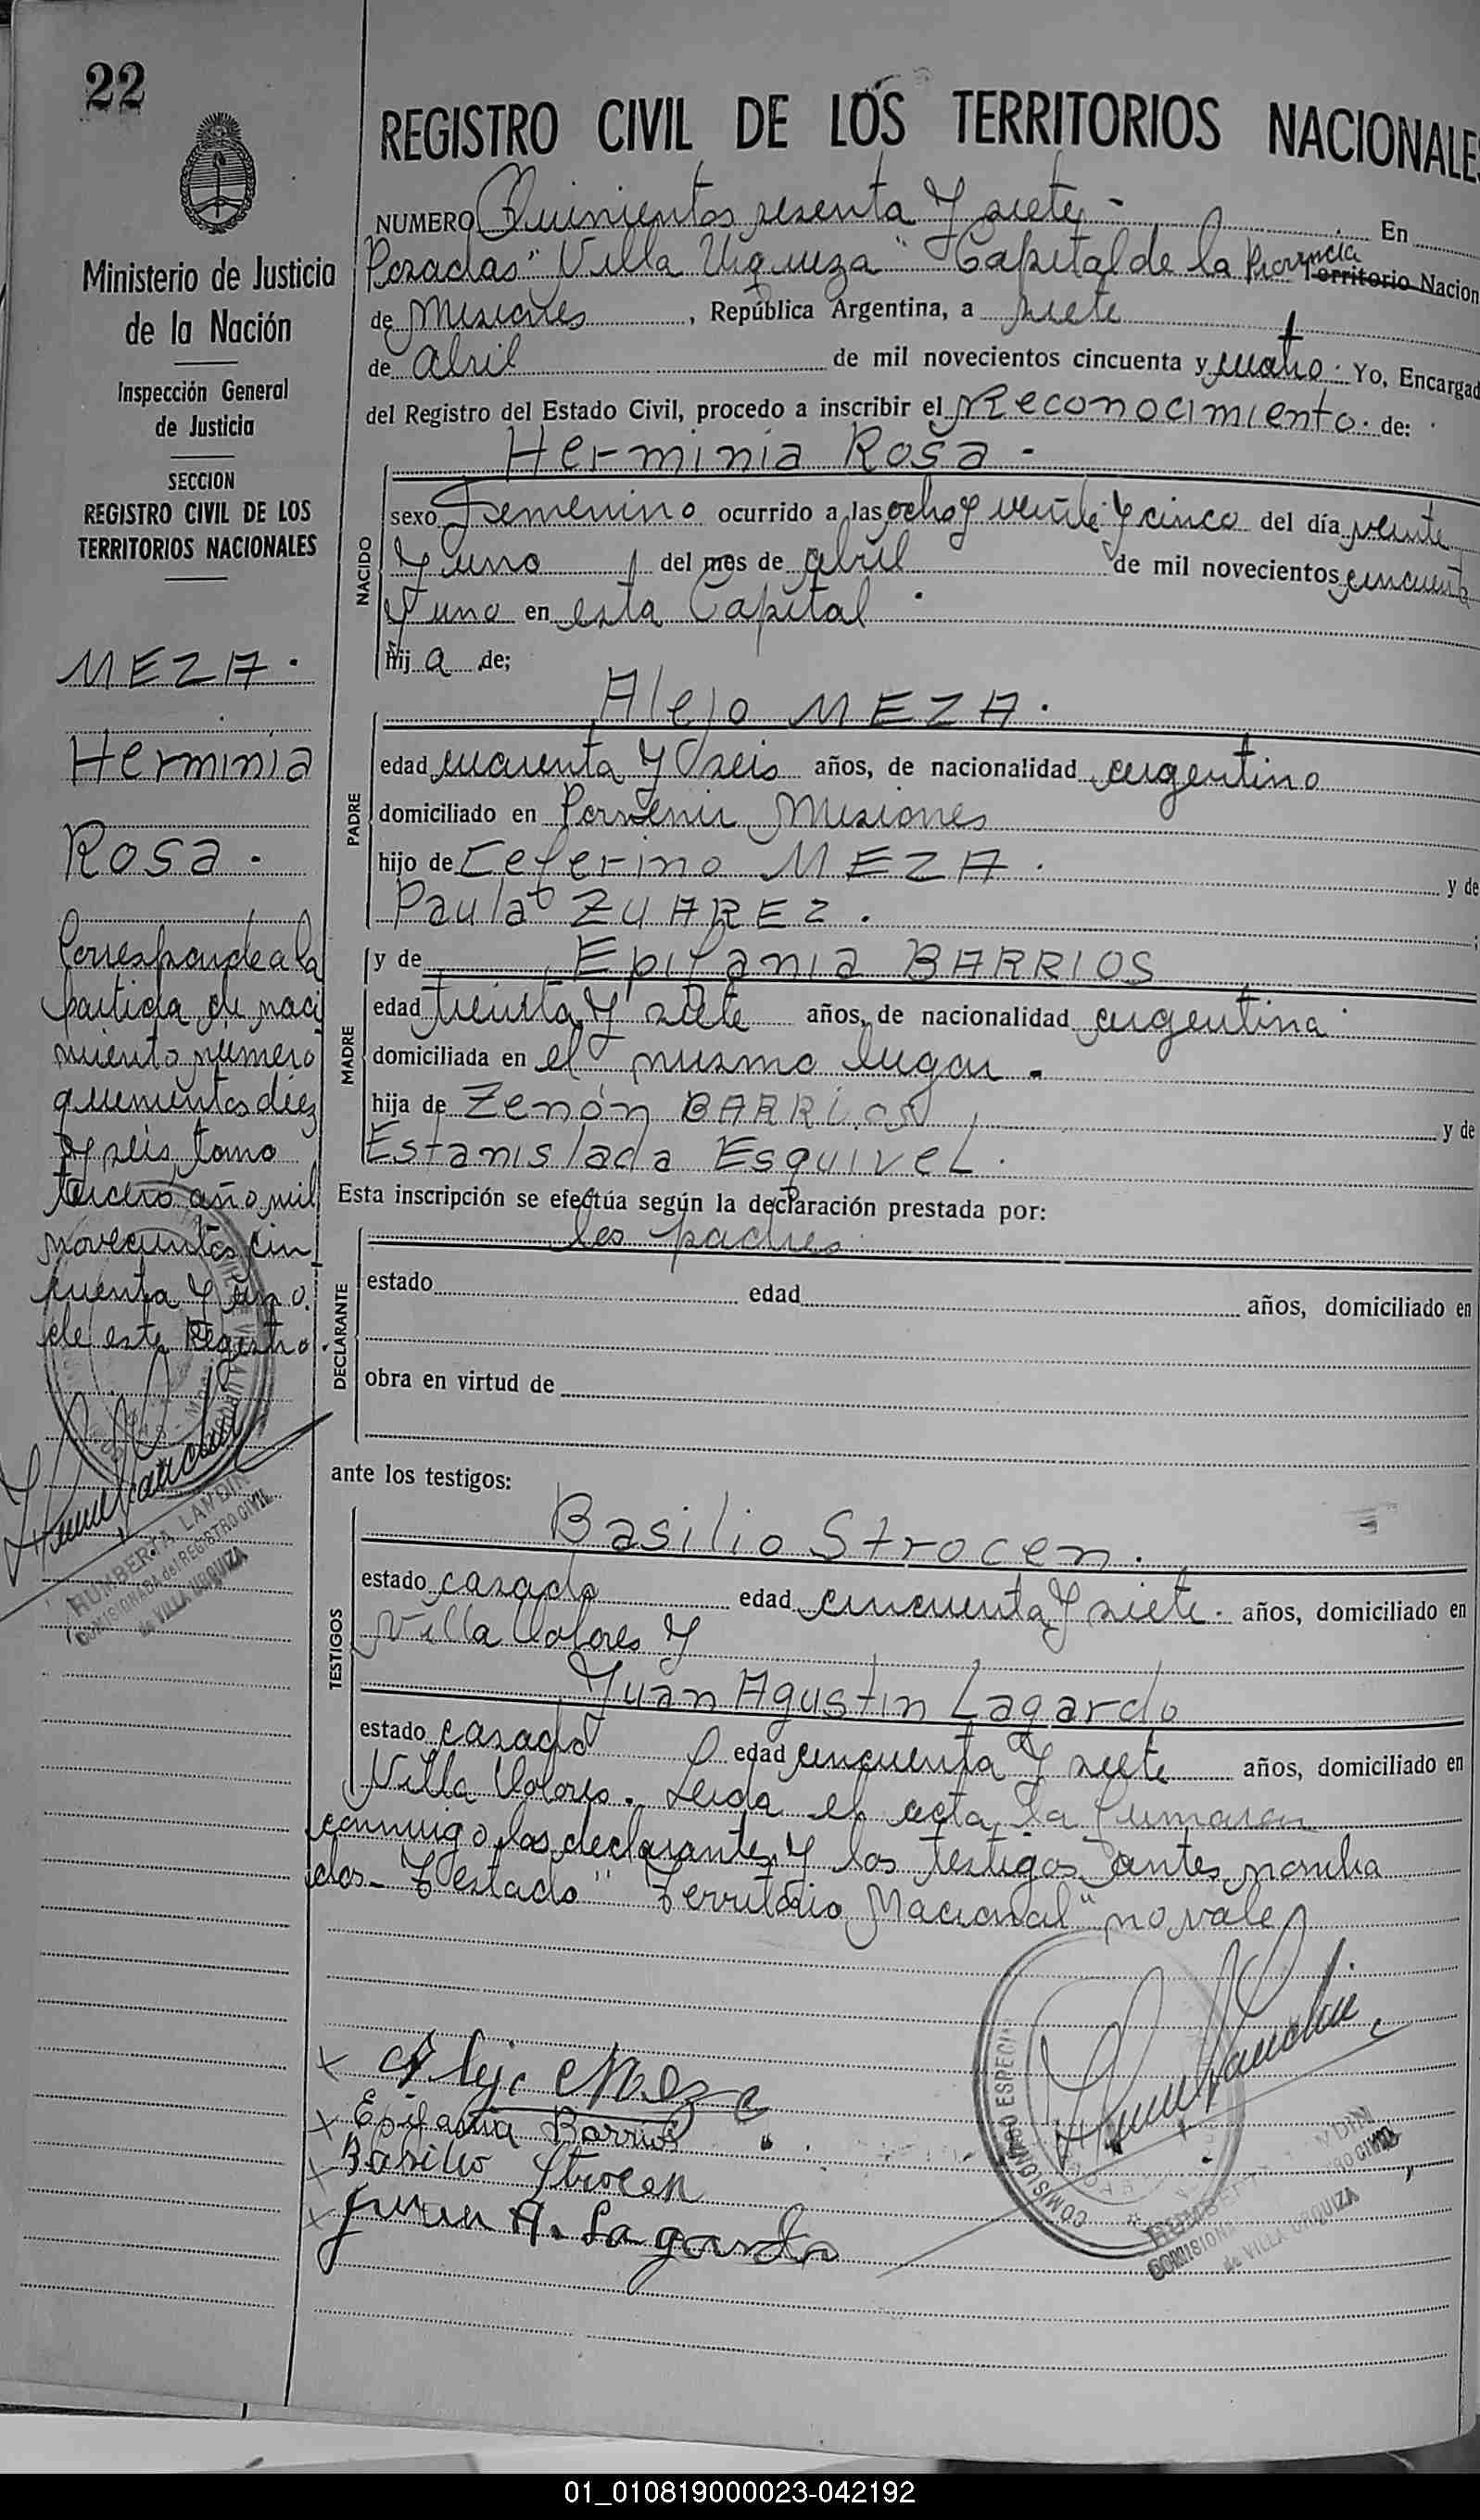 22
REGISTRO CIVIL DE LOS TERRITORIOS NACIONALES
Ministerio de Justicia
de la Nación
Inspección General
de Justicia
SECCION
REGISTRO CIVIL DE LOS
TERRITORIOS NACIONALES
MEZA.
Herminia
Rosa.
Corresponde a la
partida de naci
miento número
quinientos diez
y seis, tomo
tercero año mil
novecientos cin
cuenta y uno.
de este Registro.
HUMBERTA LANDIN
COMISIONADA del REGISTRO CIVIL
de VILLA URQUIZA
NUMERO Quinientos sesenta y siete - En
Posadas "Villa Urquiza" Capital de la Provincia Territorio Nacion
de Misiones, República Argentina, a siete
de abril de mil novecientos cincuenta y cuatro. Yo, Encargad
del Registro del Estado Civil, procedo a inscribir el Reconocimiento. de:
NACIDO
Herminia Rosa -
sexo Femenino ocurrido a las ocho y veinte y cinco del día veinte
y uno del mes de abril de mil novecientos cincuenta
y uno en esta Capital.
hij a de;
PADRE
Alejo MEZA.
edad cuarenta y seis años, de nacionalidad argentino
domiciliado en Porvenir Misiones
hijo de Ceferino MEZA. y de
Paula ZUAREZ. ;
MADRE
y de Epifania BARRIOS
edad treinta y siete años, de nacionalidad argentina
domiciliada en el mismo lugar -
hija de Zenón BARRIOS y de
Estanislada EsquiveL.
Esta inscripción se efectúa según la declaración prestada por:
DECLARANTE
los padres
estado edad años, domiciliado en
obra en virtud de
ante los testigos:
TESTIGOS
Basilio Strocen.
estado casado edad cincuenta y siete. años, domiciliado en
Villa Dolores y
Juan Agustin Lagardo
estado casado edad cincuenta y siete años, domiciliado en
Villa Dolores. Leida el acta la firmaron
conmigo los declarantes y los testigos antes nombra
dos - Testado "Territorio Nacional" no vale
x Alejo Meza
x Epifania Barrios
x Basilio Strocen
x Juan A. Lagardo
COMISIONADO ESPECI
de VILLA URQUIZA
01_010819000023-042192